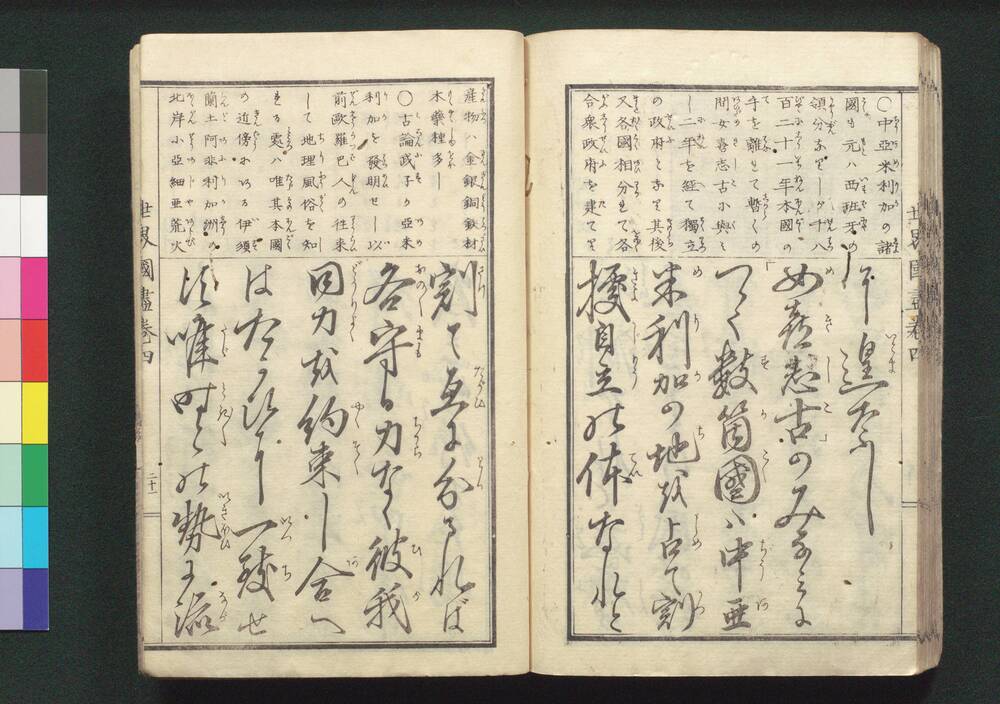 ○中亞米利加の諸
國も元ハ西班牙の
領分なりしが千八
百二十一年本國の
手を離して暫くの
間女喜志古に與
し二年を経て獨立
の政府となり其後
又各國相分れて各
合衆政府を建てり
皇
女喜志古のみなみに
つゞく數箇國ハ中亜
米利加の地を占て割
據自立の体なれど
世界國盡卷四
産物ハ金銀銅鉄材
木藥種多し
○古論武子が亞米
利加を發明せし以
前歐羅巴人の往來
して地理風俗を知
る處ハ唯其本國
の近傍に在る伊須
蘭土阿非利加洲の
北岸小亞細亞荒火
割て互に分るれば
各守る力なく彼我
同力を約束し合へ
はたがひに一致せ
ず唯時の勢に流
世界國盡卷四
二十一